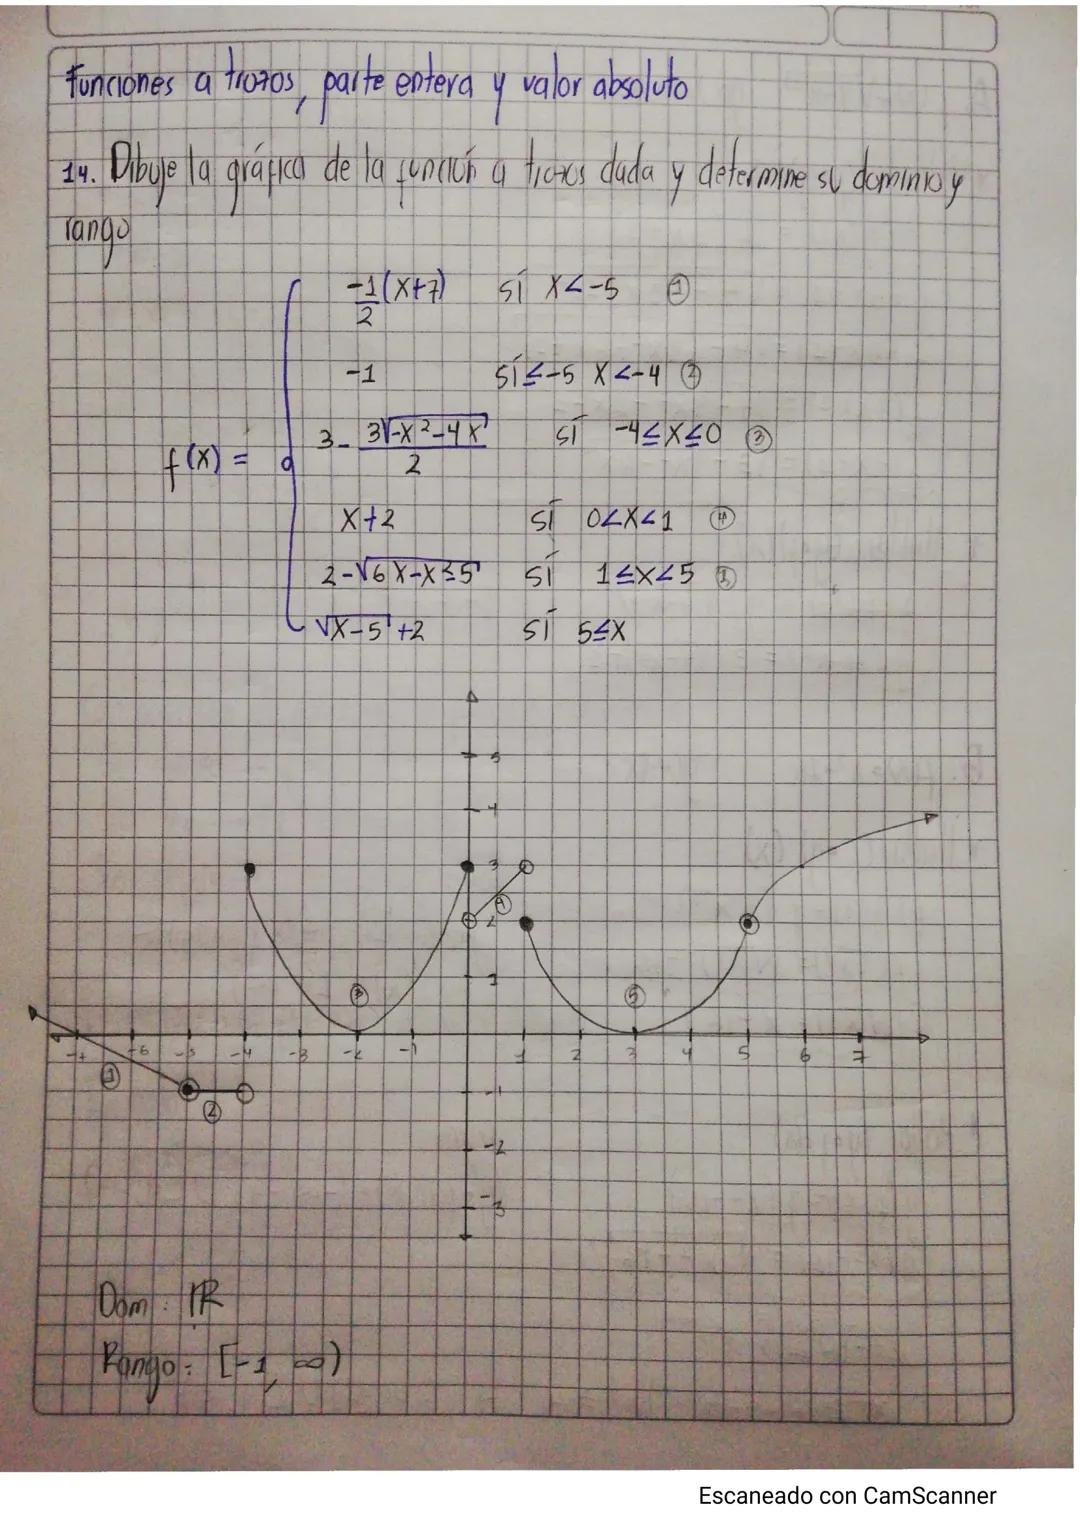 Funciones a trozos, parte entera y valor absoluto
14. Dibuje la gráfica de la función a trozos dada y determine su dominio y
rango
-1/2 (x+7) sí x<-5 ①
-1 sí ≤-5 x<-4 ②
f(x) = 3 - 3√-x²-4x / 2 sí -4≤x≤0 ③
x+2 sí 0<x<1 ④
2-√6x-x²-5 sí 1≤x<5 ⑤
√x-5 +2 sí 5≤x
5
4
3
④
2
1
③ ⑤
-7 -6 -5 -4 -3 -2 -1 1 2 3 4 5 6 7
①
-1
②
-2
-3
Dom: ℝ
Rango: [-1, ∞)
Escaneado con CamScanner